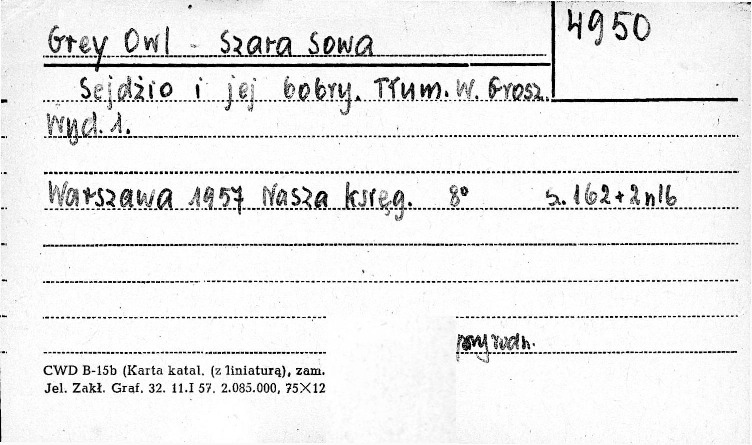 4950
Grey Owl - Szara Sowa
Sejdżio i jej bobry. Tłum. W. Grosz.
Wyd. 1.
Warszawa 1957 Nasza Księg. 8° s. 162+2nlb
przyrodn.
CWD B-15b (Karta katal. (z liniaturą), zam.
Jel. Zakł. Graf. 32. 11.I 57. 2.085.000, 75×12